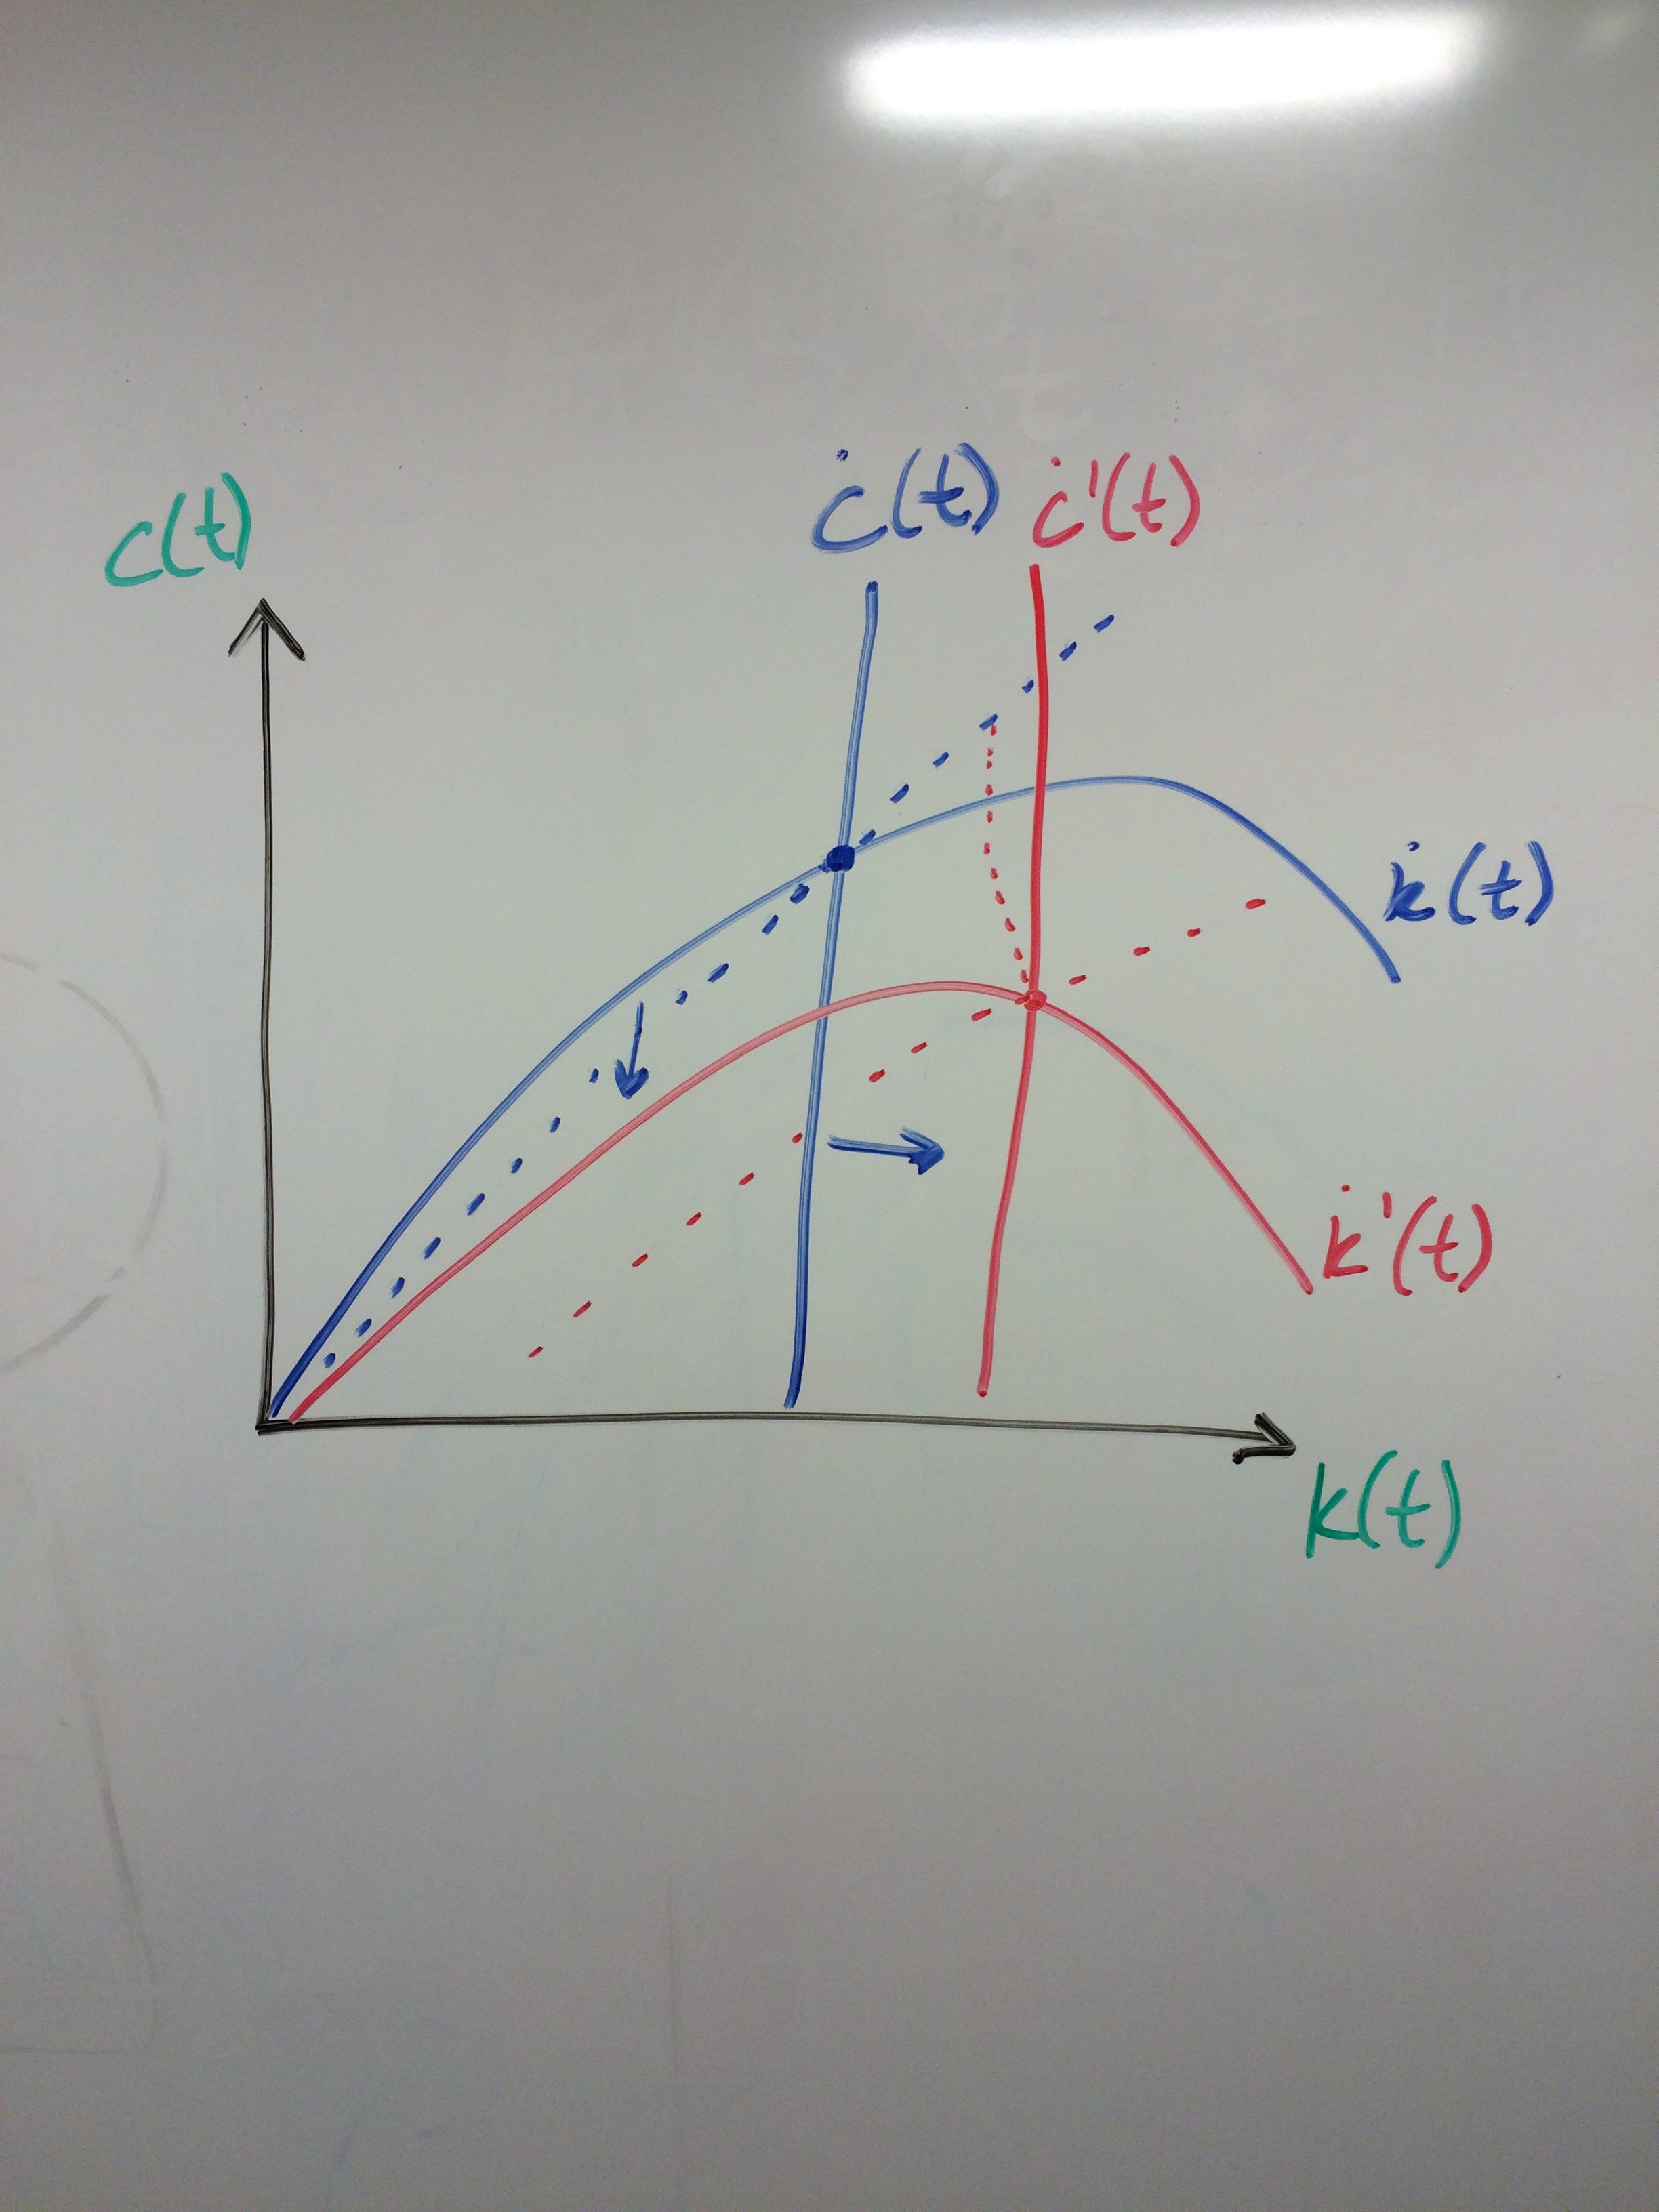 c(t)
ċ(t) ċ'(t)
k̇(t)
k̇'(t)
k(t)